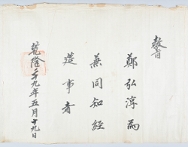 敎旨
鄭弘淳爲
兼同知經
筵事者
乾隆二十九年五月十九日